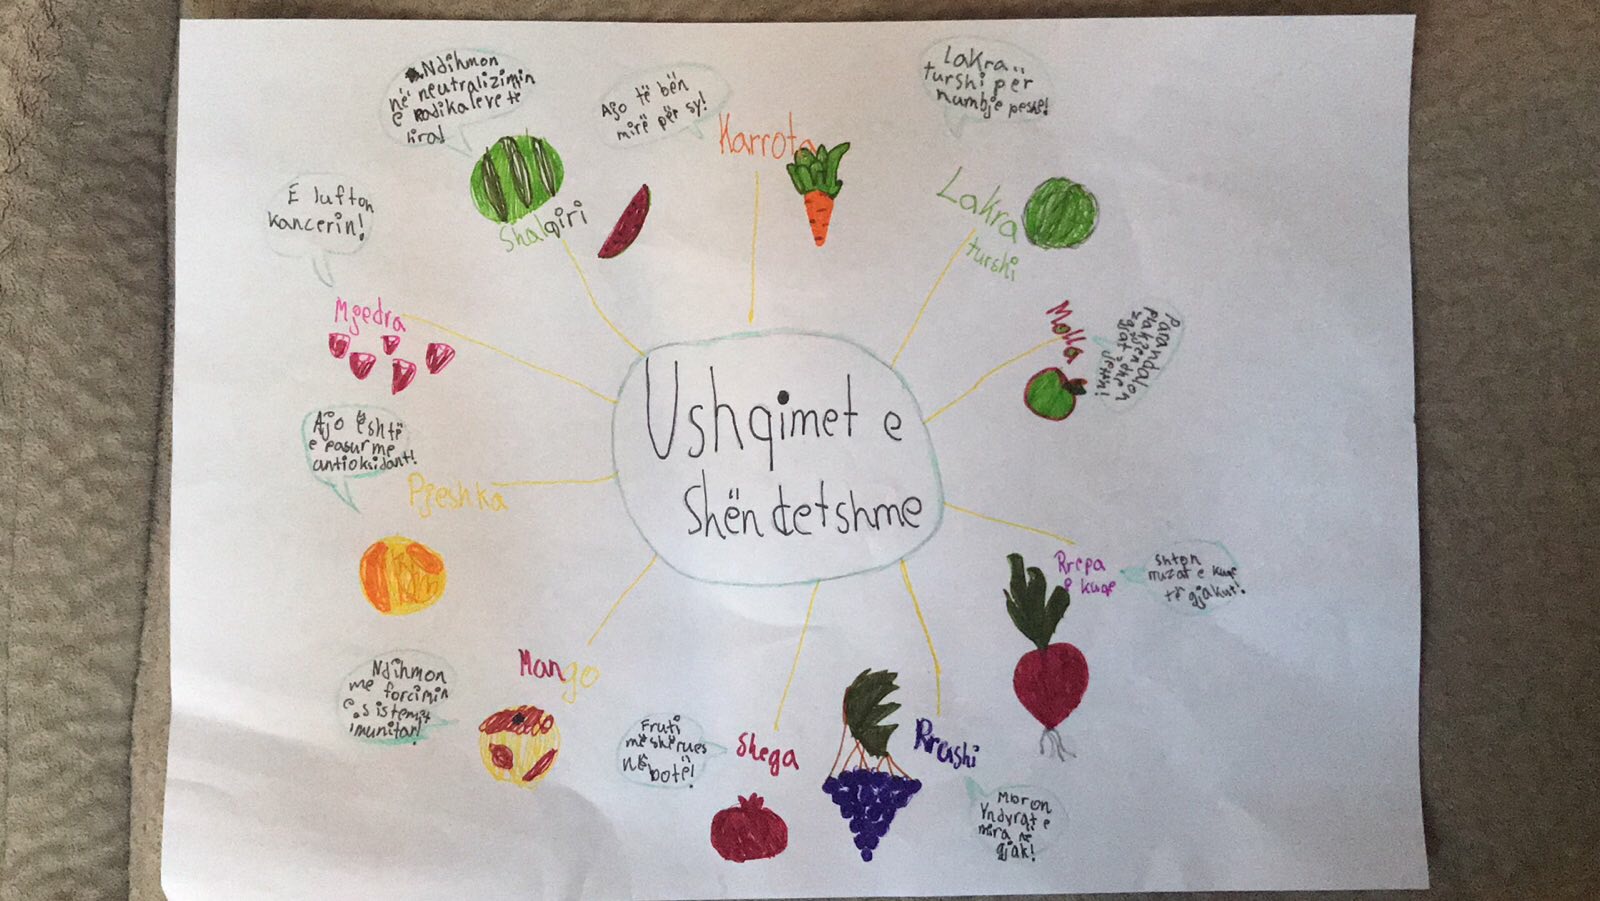 Ushqimet e
shëndetshme
Ndihmon
në neutralizimin
e radikaleve të
lira!
Shalqiri
Ajo të bën
mirë për sy!
Karrota
Lakra
turshi për
humbje peshe!
Lakra
turshi
Molla
Parandalon
plakjen dhe
zgjat
jetën!
Rrepa
e kuqe
shton
rruzat e kuqe
të gjakut!
Rrushi
Mbron
Yndyrat e
mira në
gjak!
Shega
Fruti
më shërues
në botë!
Mango
Ndihmon
me forcimin
e sistemit
imunitar!
Pjeshka
Ajo është
e pasur me
antioksidant!
Mjedra
E lufton
kancerin!